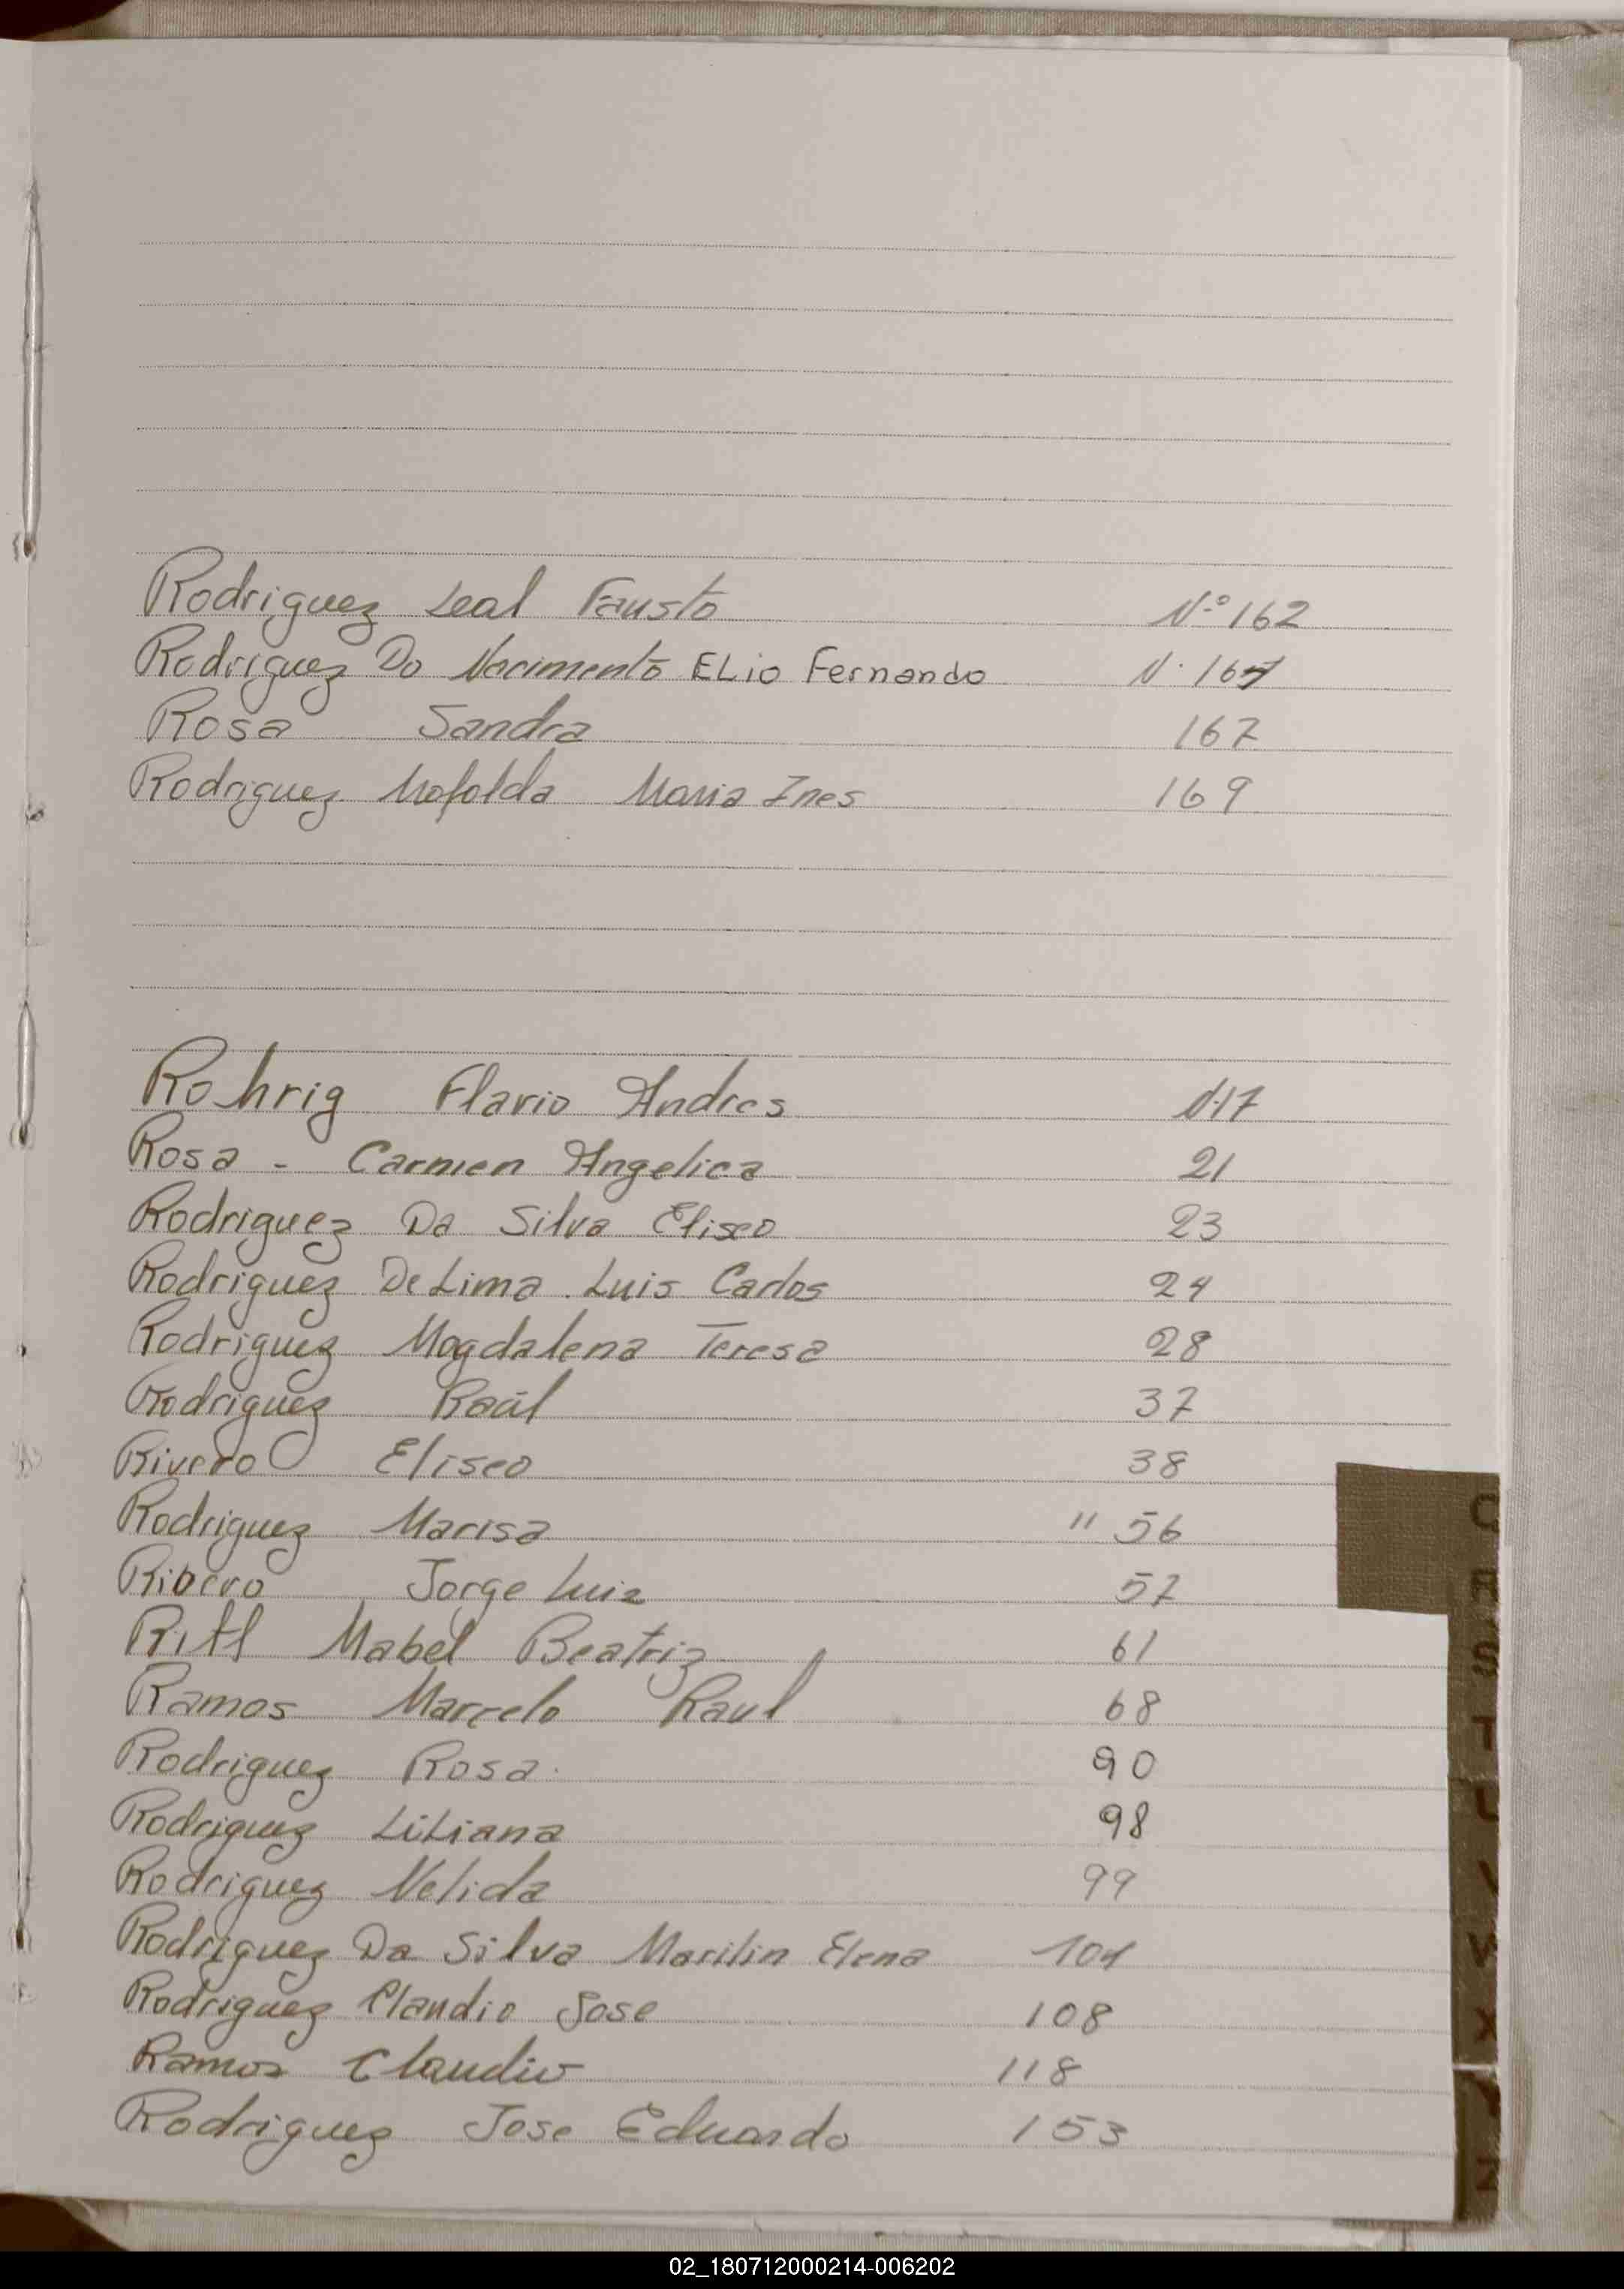 Rodriguez Leal Fausto Nº 162
Rodriguez Do Nacimento ELio Fernando N.
Rosa Sandra 167
Rodriguez Mafalda Maria Ines 169
Rohrig Flavio Andres N.17
Rosa - Carmen Angelica 21
Rodriguez Da Silva Eliseo 23
Rodriguez De Lima Luis Carlos 24
Rodriguez Magdalena Teresa 28
Rodriguez Raúl 37
Rivero Eliseo 38
Rodriguez Marisa " 56
Ribero Jorge Luiz 57
Mabel Beatriz 61
Ramos Marcelo Raul 68
Rodriguez Rosa 90
Rodriguez Liliana 98
Rodriguez Nelida 99
Rodriguez Da Silva Marilin Elena 101
Rodriguez Claudio Jose 108
Ramos Claudio 118
Rodriguez Jose Eduardo 153
Q
R
S
T
U
V
W
X
Y
Z
02_180712000214-006202